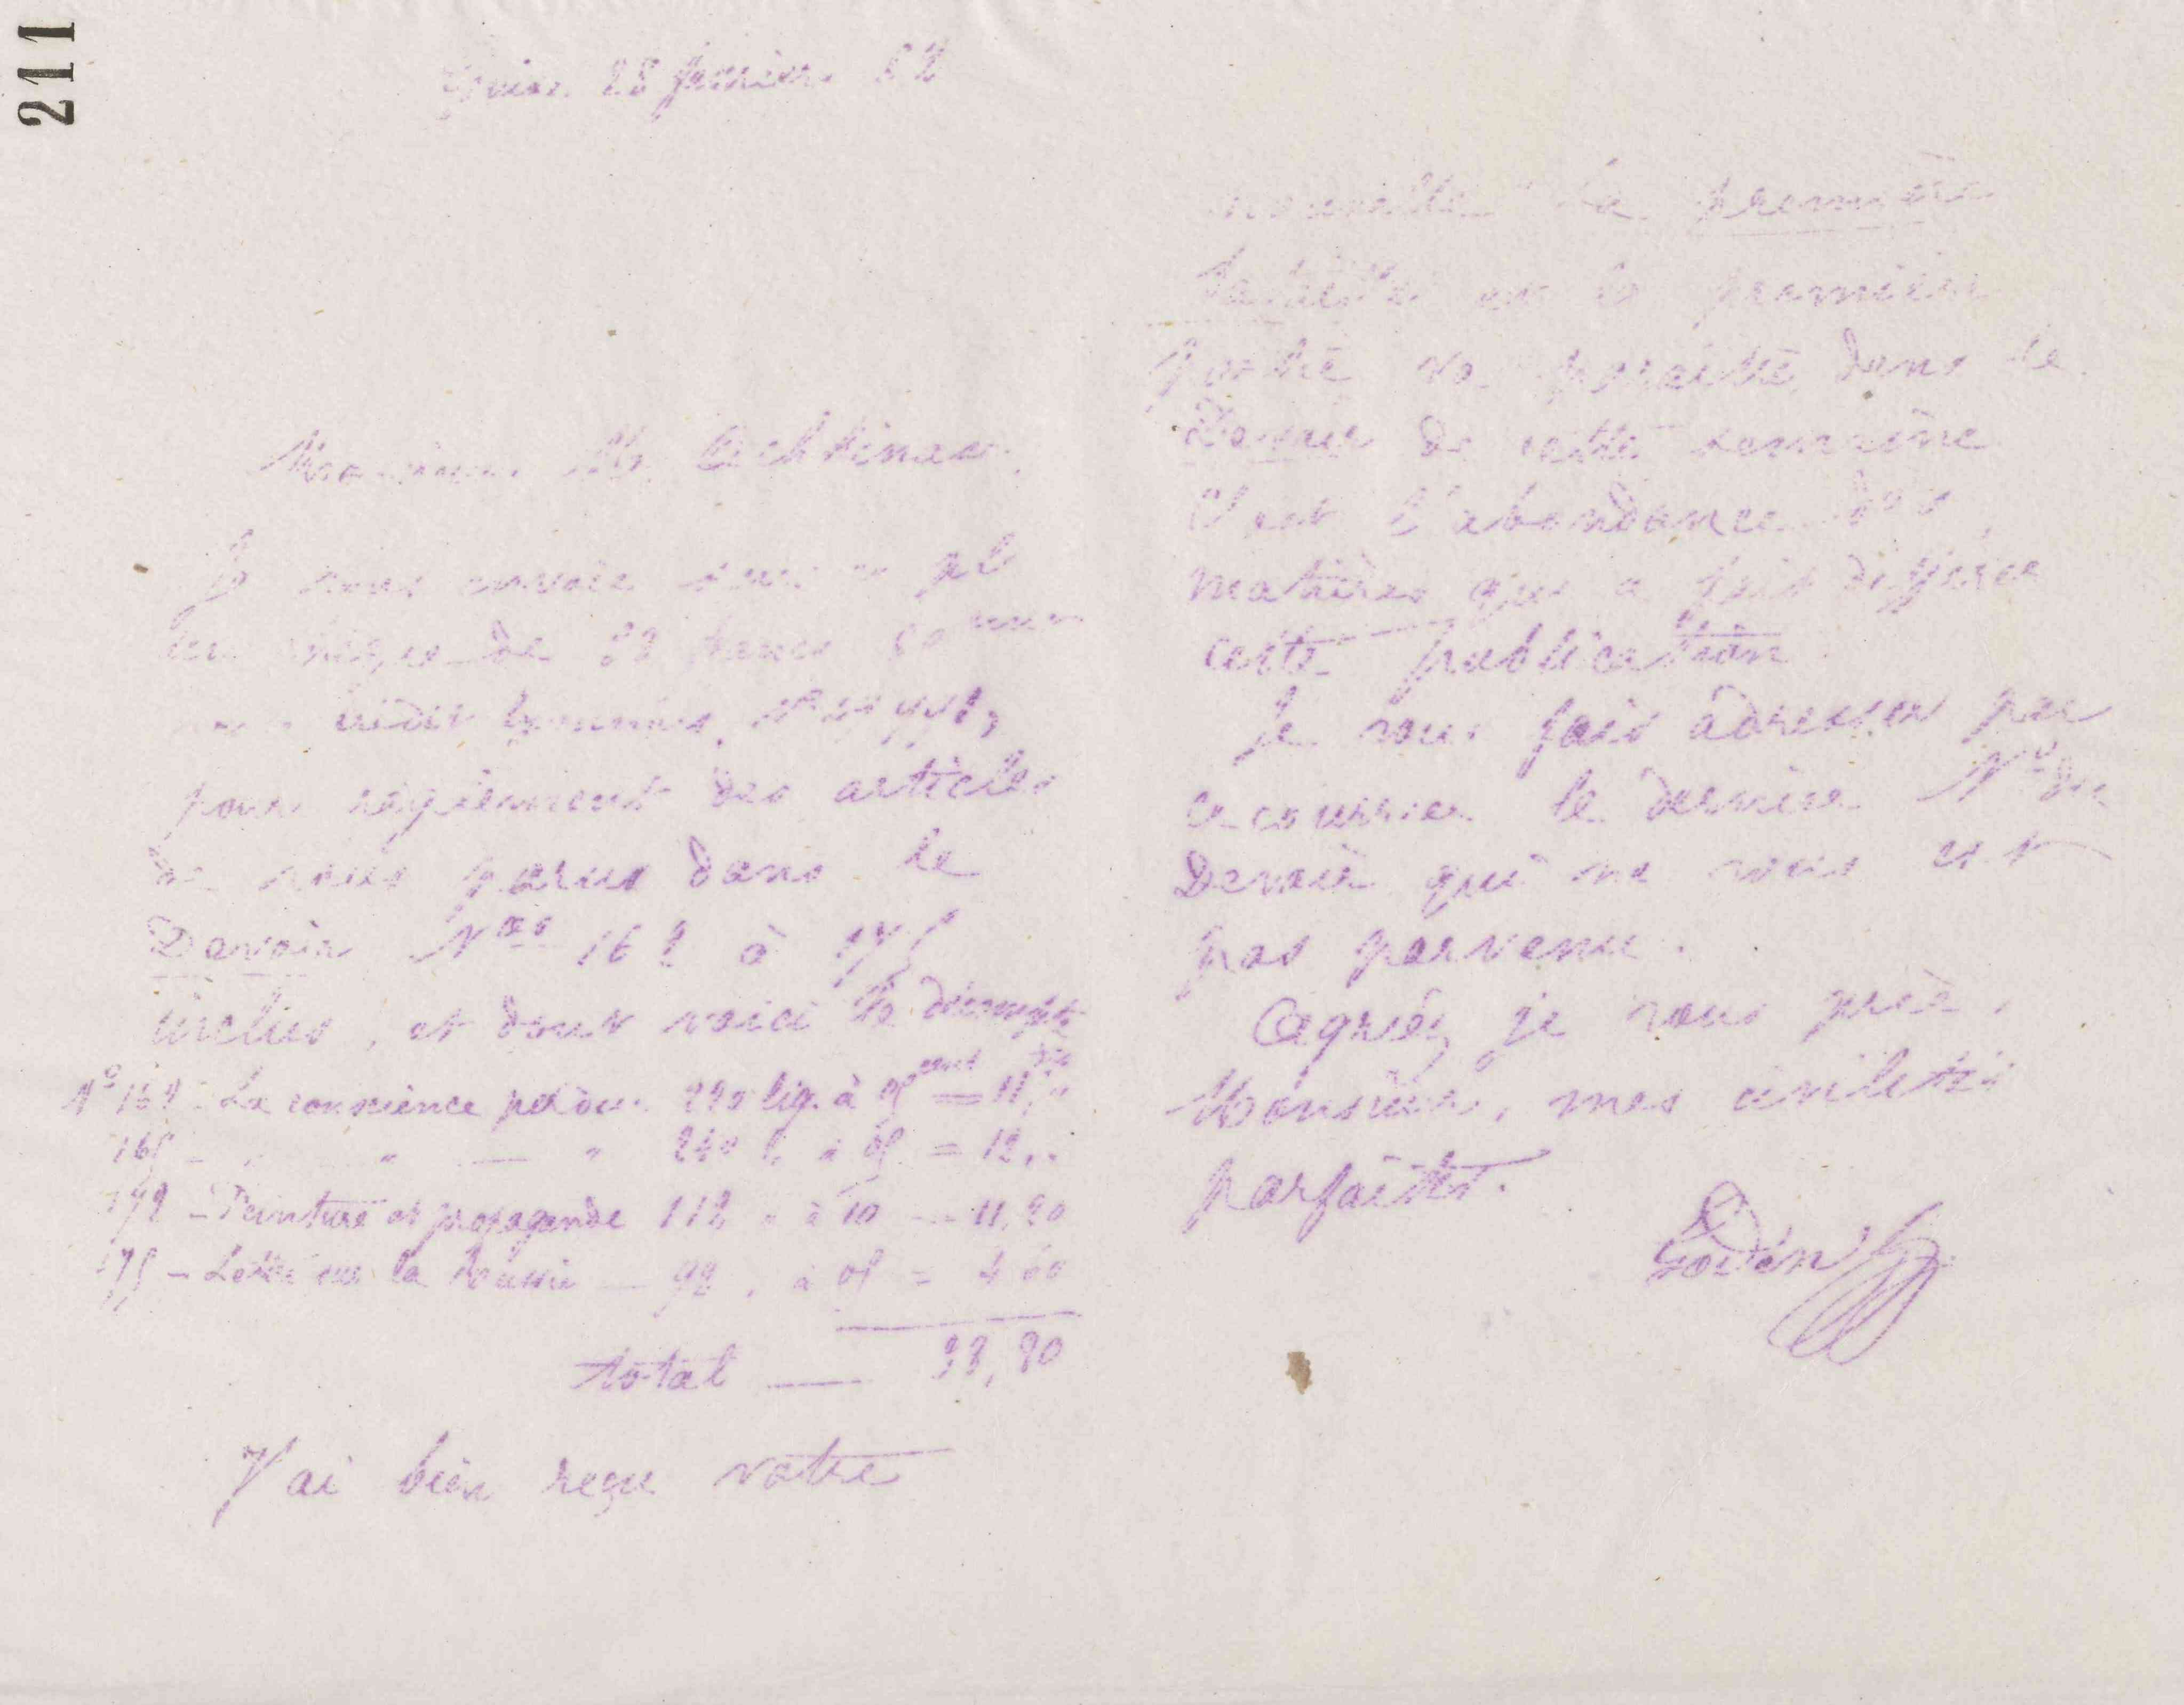 211
Guise 28 Janvier 82
Monsieur M.
Je vous envoie
de francs
crédit Lyonnais
pour règlement des articles
de vous parus dans le
Devoir Nos 16 à 175
inclus, et dont voici le décompte
No 164 La conscience lig. à 05 cent = 11,
165 — " — " 240 l. à 05 = 12,"
172 — Peinture et propagande 112 " à 10 — 11,20
175 — Lettre sur la Russie — 92 " à 05 = 4 60
total —
J'ai bien reçu votre
nouvelle La première
la première
partie va paraître dans le
Devoir de cette semaine
C'est l'abondance des
matières qui a fait différer
cette publication.
Je vous fais adresser par
ce courrier le dernier No du
Devoir qui ne vous est
pas parvenu.
Agréez je vous prie,
Monsieur, mes civilités
parfaites.
Godin